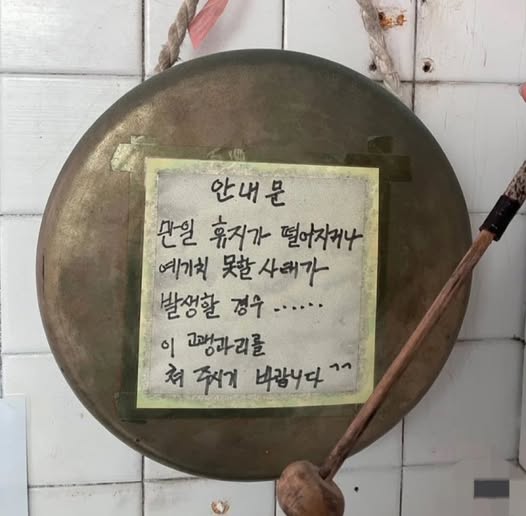 안내문
만일 휴지가 떨어지거나
예기치 못할 사태가
발생할 경우......
이 꽹과리를
쳐 주시기 바랍니다 ^^